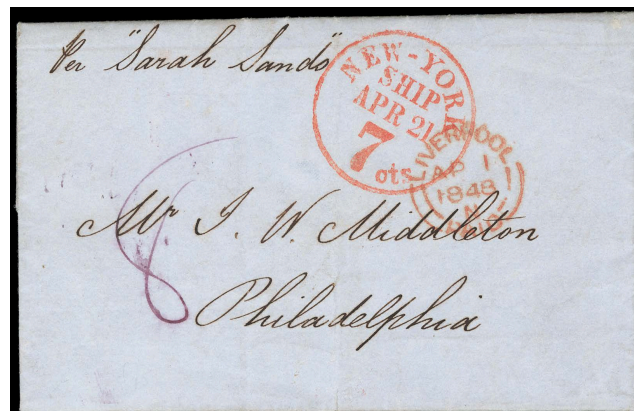 Per "Sarah Sands"
NEW-YORK
SHIP
APR 21
7
cts
LIVERPOOL
AP 1
1848
SHIP
8
Mr J. W. Middleton
Philadelphia